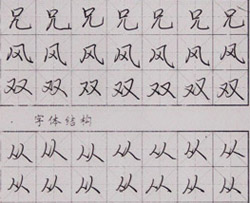 兄兄兄兄兄兄兄
风风风风风风风
双双双双双双双
字体结构
从从从从从从从
从从从从从从从